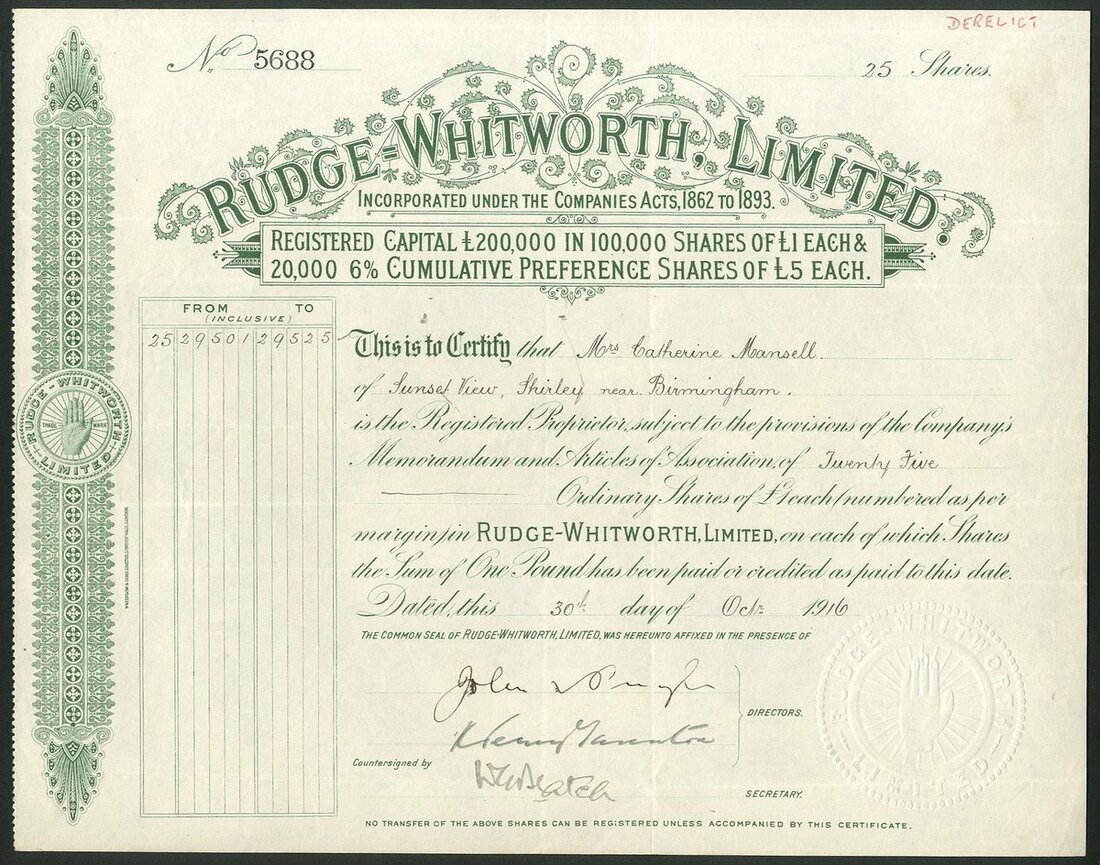 DERELICT
No 5688
25 Shares.
RUDGE=WHITWORTH, LIMITED.
INCORPORATED UNDER THE COMPANIES ACTS, 1862 TO 1893.
REGISTERED CAPITAL £200,000 IN 100,000 SHARES OF £1 EACH &
20,000 6% CUMULATIVE PREFERENCE SHARES OF £5 EACH.
FROM TO
(INCLUSIVE)
25 29501 29525
This is to Certify that Mrs Catherine Mansell.
of Sunset View, Shirley near Birmingham.
is the Registered Proprietor, subject to the provisions of the Company's
Memorandum and Articles of Association, of Twenty Five
Ordinary Shares of £1 each (numbered as per
margin) in RUDGE-WHITWORTH, LIMITED, on each of which Shares
the Sum of One Pound has been paid or credited as paid to this date.
Dated, this 30th day of Octr 1916
THE COMMON SEAL OF RUDGE-WHITWORTH, LIMITED, WAS HEREUNTO AFFIXED IN THE PRESENCE OF
John
DIRECTORS.
Countersigned by
SECRETARY.
NO TRANSFER OF THE ABOVE SHARES CAN BE REGISTERED UNLESS ACCOMPANIED BY THIS CERTIFICATE.
RUDGE-WHITWORTH
TRADE MARK
LIMITED
RUDGE-WHITWORTH
LIMITED